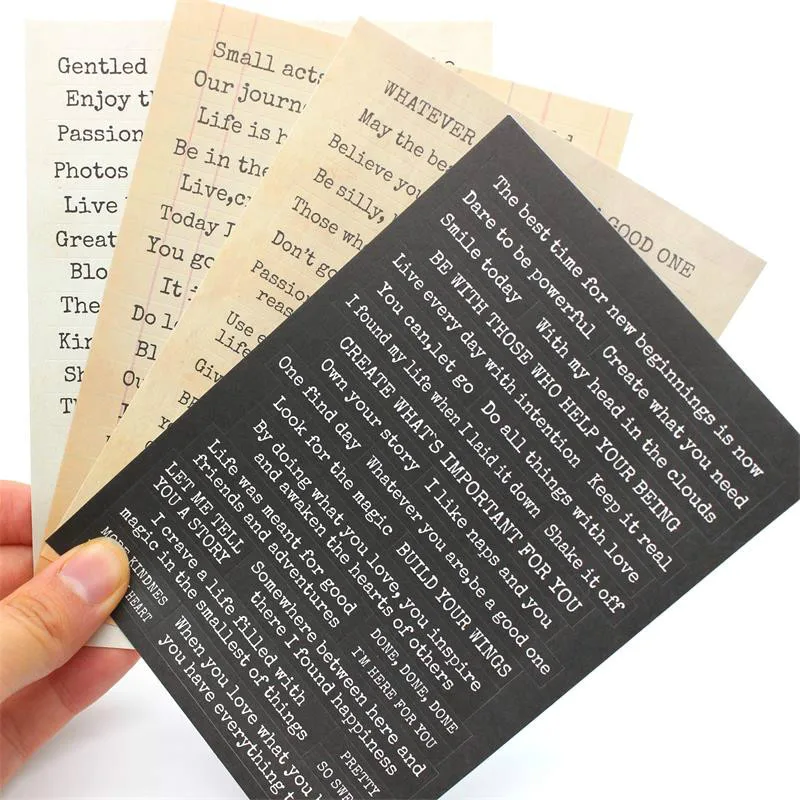 Gentled
Enjoy th
Passion
Photos
Live
Great
Blo
The
Kin
Sh
Th
Small acts
Our journ
Life is h
Be in the
Live,cr
Today I
You go
It i
Do lo
Bl
Ou
L
B
WHATEVER
GOOD ONE
May the bea
Believe you
Be silly,
Those wh
Don't go
Passion
reas
Use e
life
Giv
BE
Y
The best time for new beginnings is now
Dare to be powerful
Create what you need
Smile today
With my head in the clouds
BE WITH THOSE WHO HELP YOUR BEING
Keep it real
Live every day with intention
Do all things with love
You can,let go
Shake it off
I found my life when I laid it down
CREATE WHAT'S IMPORTANT FOR YOU
Own your story
I like naps and you
One find day
Whatever you are,be a good one
Look for the magic
BUILD YOUR WINGS
By doing what you love, you inspire
and awaken the hearts of others
DONE, DONE, DONE
I'M HERE FOR YOU
Life was meant for good
friends and adventures
Somewhere between here and
there I found happiness
PRETTY
SO SWE
LET ME TELL
YOU A STORY
I crave a life filled with
magic in the smallest of things
When you love what you
you have everything
MORE KINDNES
HEART